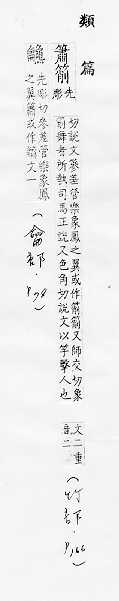 類
篇
簫箾
先彫
切說文參差管樂象鳳之翼或作箾箾又師交切象
箾舞者所執司馬王說又色角切說文以竿擊人也
文二重
音二
(竹部·P,166)
先彫切參差管樂象鳳
之翼簫或作箾文一
(龠部·P,74)